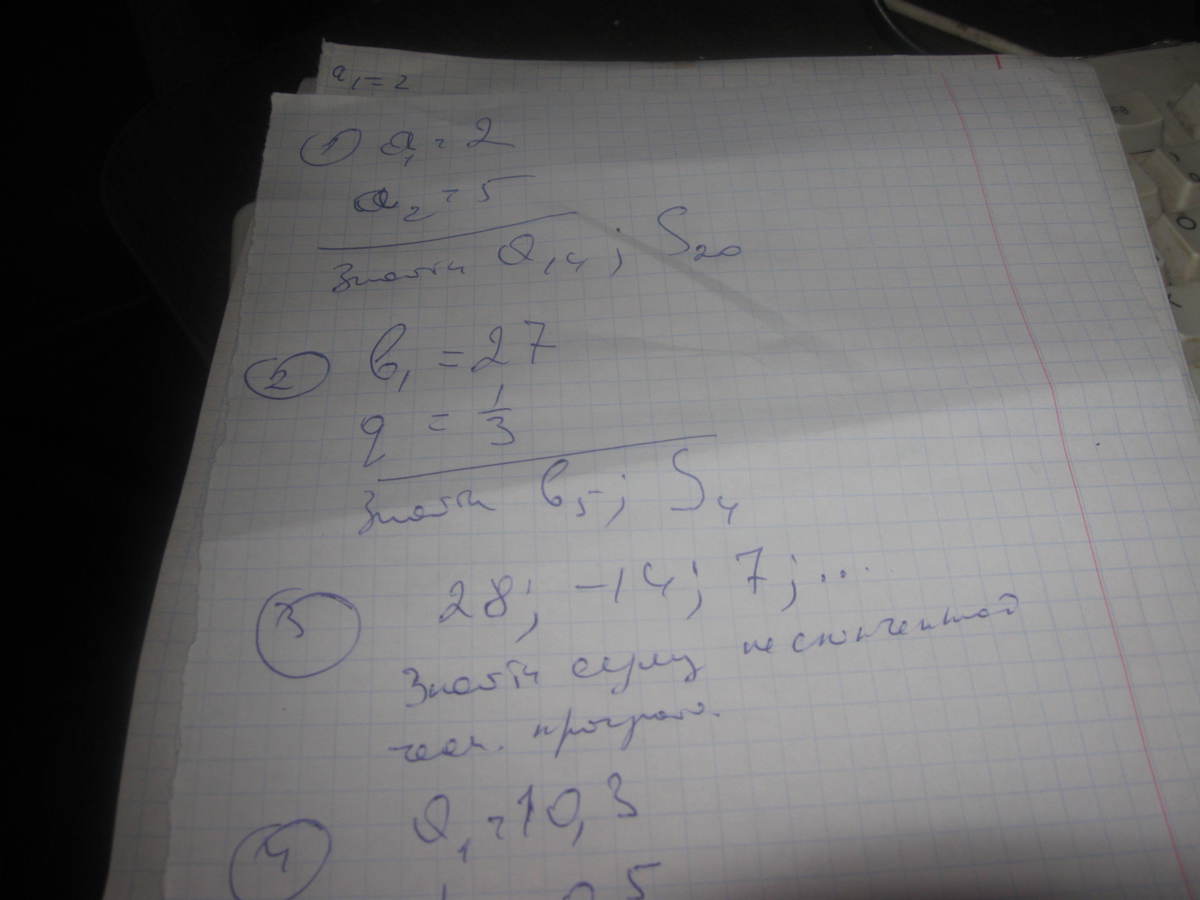 a₁ = 2
1) a₁ = 2
a₂ = 5
Знайти a₁₄; S₂₀
2) b₁ = 27
q = 1/3
Знайти b₅; S₄
3) 28; -14; 7; ...
Знайти суму нескінченної
геом. прогрес.
4) a₁ = 10,3